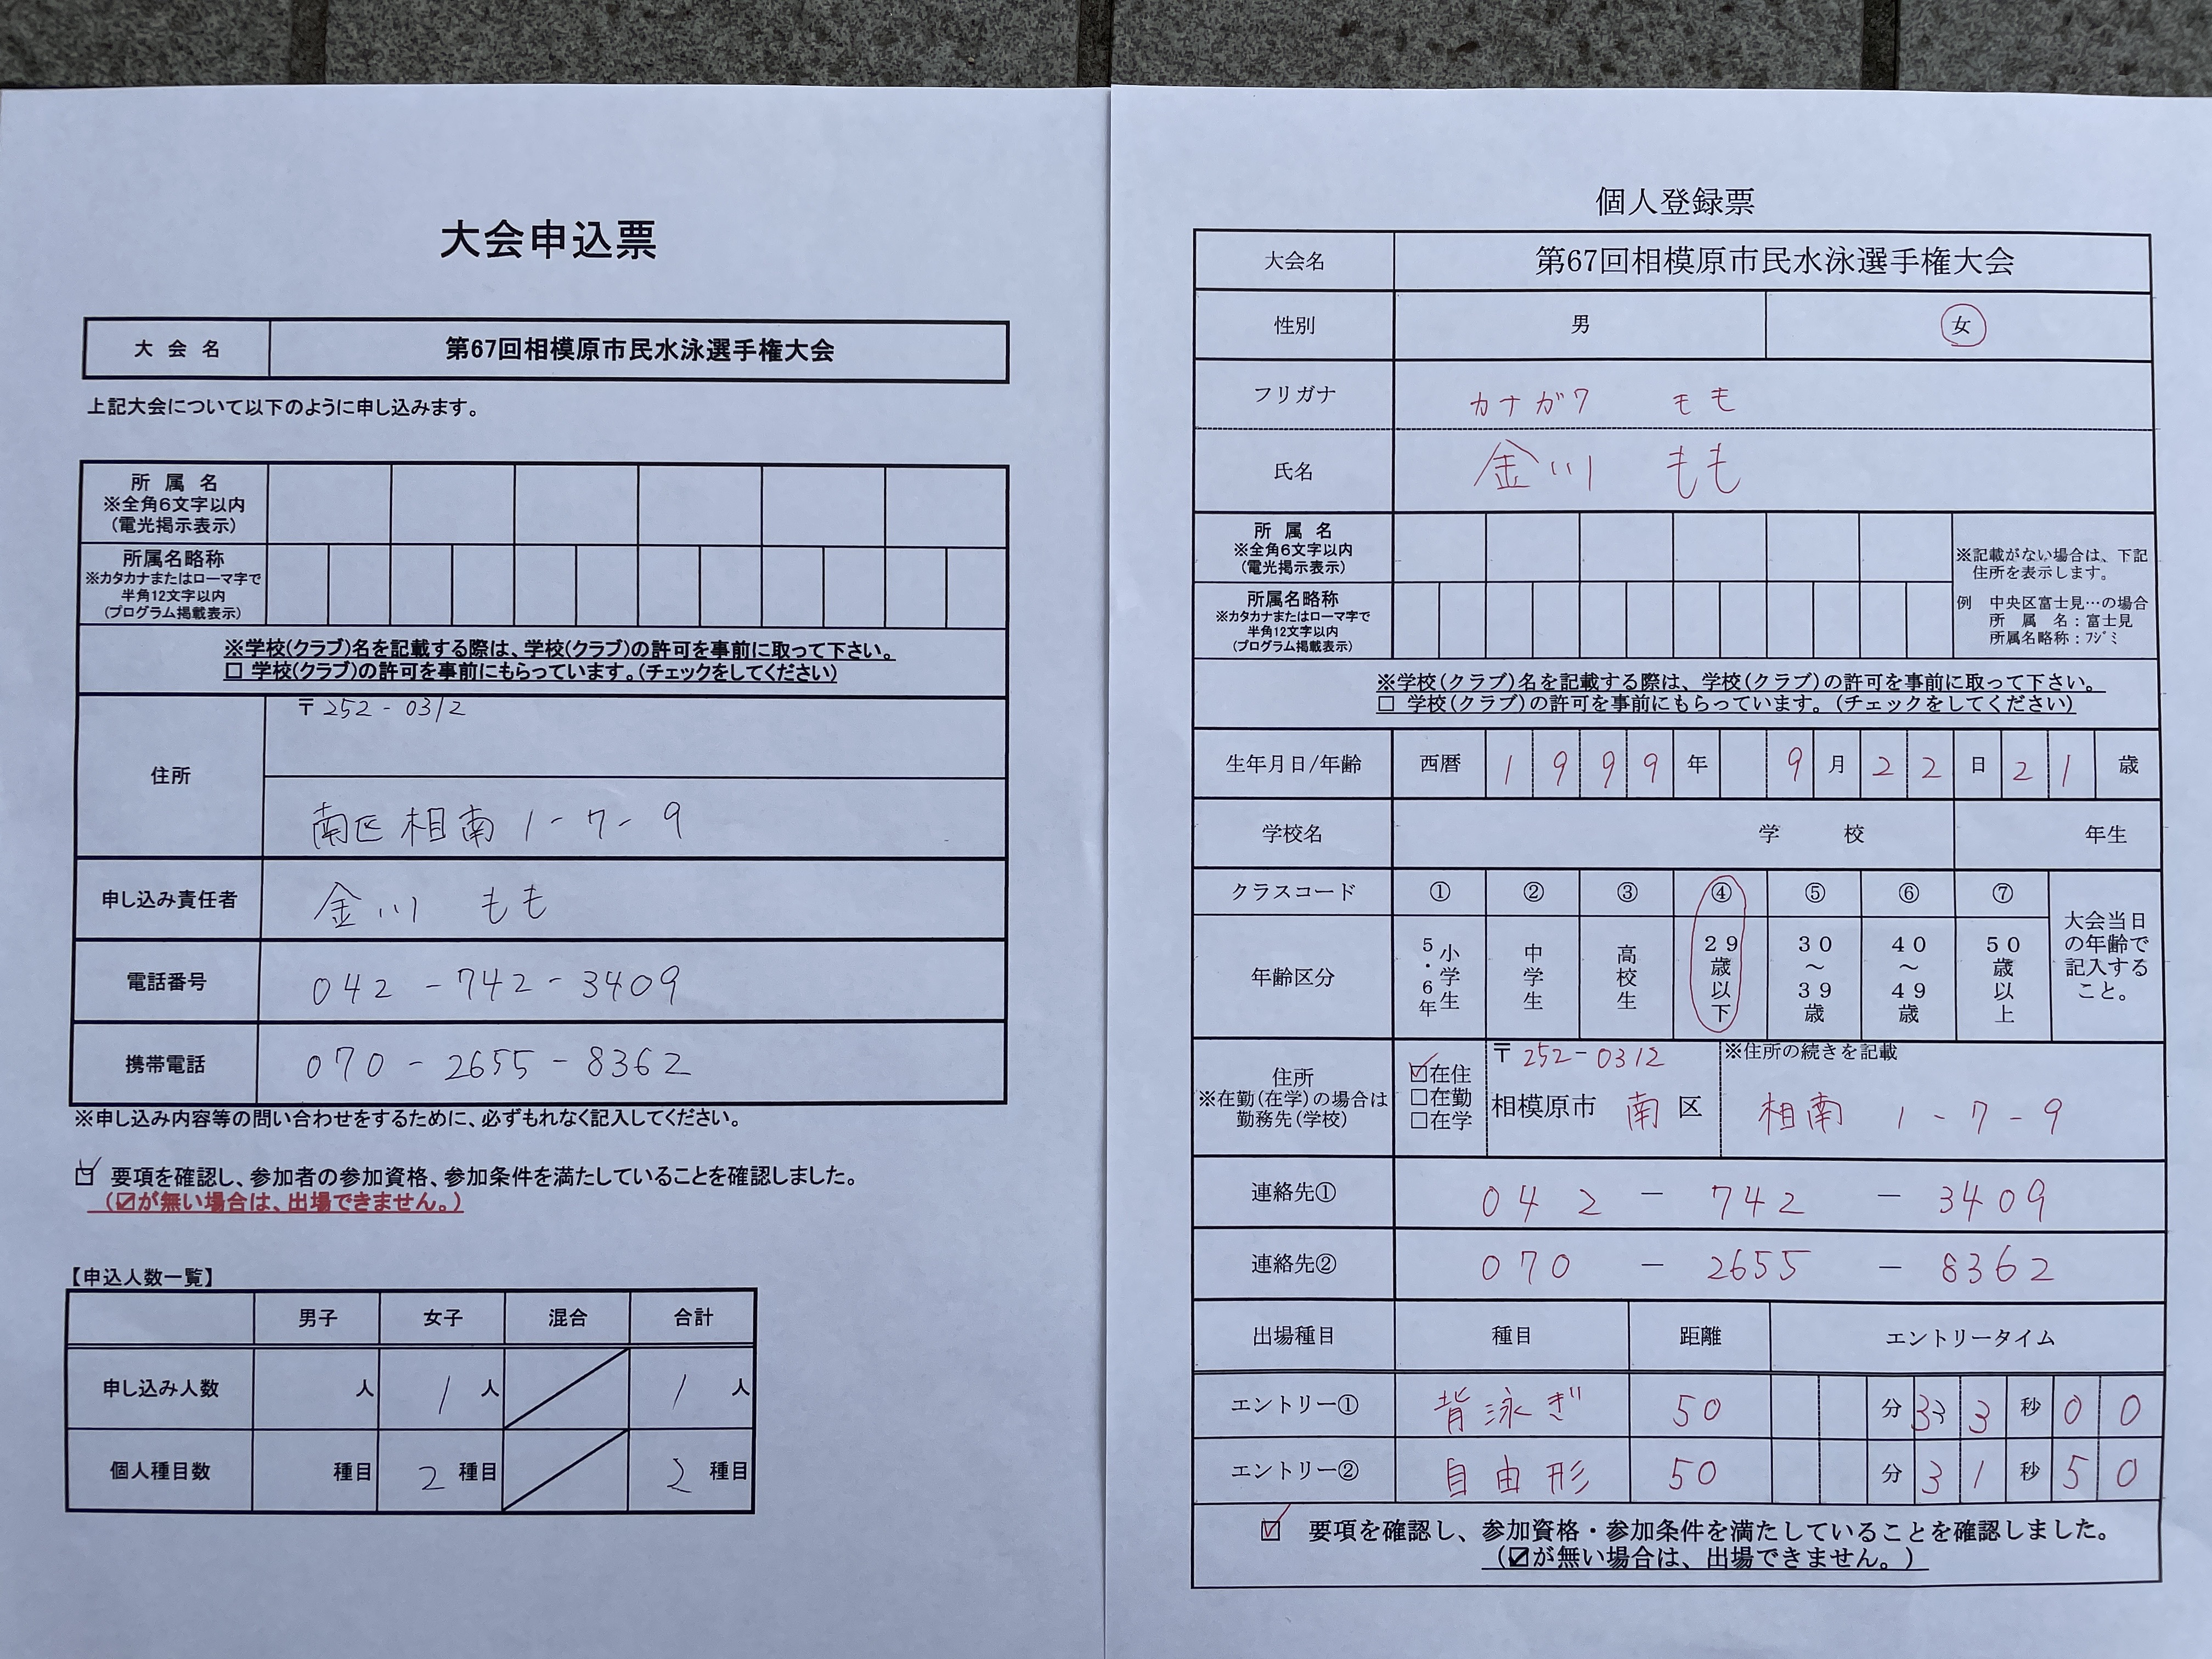 大会申込票
大会名 第67回相模原市民水泳選手権大会
上記大会について以下のように申し込みます。
所属名
※全角6文字以内
(電光掲示表示)
所属名略称
※カタカナまたはローマ字で
半角12文字以内
(プログラム掲載表示)
※学校(クラブ)名を記載する際は、学校(クラブ)の許可を事前に取って下さい。
□ 学校(クラブ)の許可を事前にもらっています。(チェックをしてください)
住所 〒252-0312
南区相南1-7-9
申し込み責任者 金川 もも
電話番号 042-742-3409
携帯電話 070-2655-8362
※申し込み内容等の問い合わせをするために、必ずもれなく記入してください。
☑ 要項を確認し、参加者の参加資格、参加条件を満たしていることを確認しました。
(☑が無い場合は、出場できません。)
【申込人数一覧】
男子 女子 混合 合計
申し込み人数 人 1人 1人
個人種目数 種目 2種目 2種目
個人登録票
大会名 第67回相模原市民水泳選手権大会
性別 男 女
フリガナ カナガワ モモ
氏名 金川 もも
所属名
※全角6文字以内
(電光掲示表示)
所属名略称
※カタカナまたはローマ字で
半角12文字以内
(プログラム掲載表示)
※記載がない場合は、下記
住所を表示します。
例 中央区富士見…の場合
所属名:富士見
所属名略称:フジミ
※学校(クラブ)名を記載する際は、学校(クラブ)の許可を事前に取って下さい。
□ 学校(クラブ)の許可を事前にもらっています。(チェックをしてください)
生年月日/年齢 西暦 1999年 9月22日 21歳
学校名 学校 年生
クラスコード ① ② ③ ④ ⑤ ⑥ ⑦
年齢区分 小学生5・6年 中学生 高校生 29歳以下 30~39歳 40~49歳 50歳以上
大会当日
の年齢で
記入する
こと。
住所
※在勤(在学)の場合は
勤務先(学校)
☑在住
□在勤
□在学
〒252-0312
相模原市 南 区
※住所の続きを記載
相南 1-7-9
連絡先① 042 - 742 - 3409
連絡先② 070 - 2655 - 8362
出場種目 種目 距離 エントリータイム
エントリー① 背泳ぎ 50 分 33秒00
エントリー② 自由形 50 分 31秒50
☑ 要項を確認し、参加資格・参加条件を満たしていることを確認しました。
(☑が無い場合は、出場できません。)